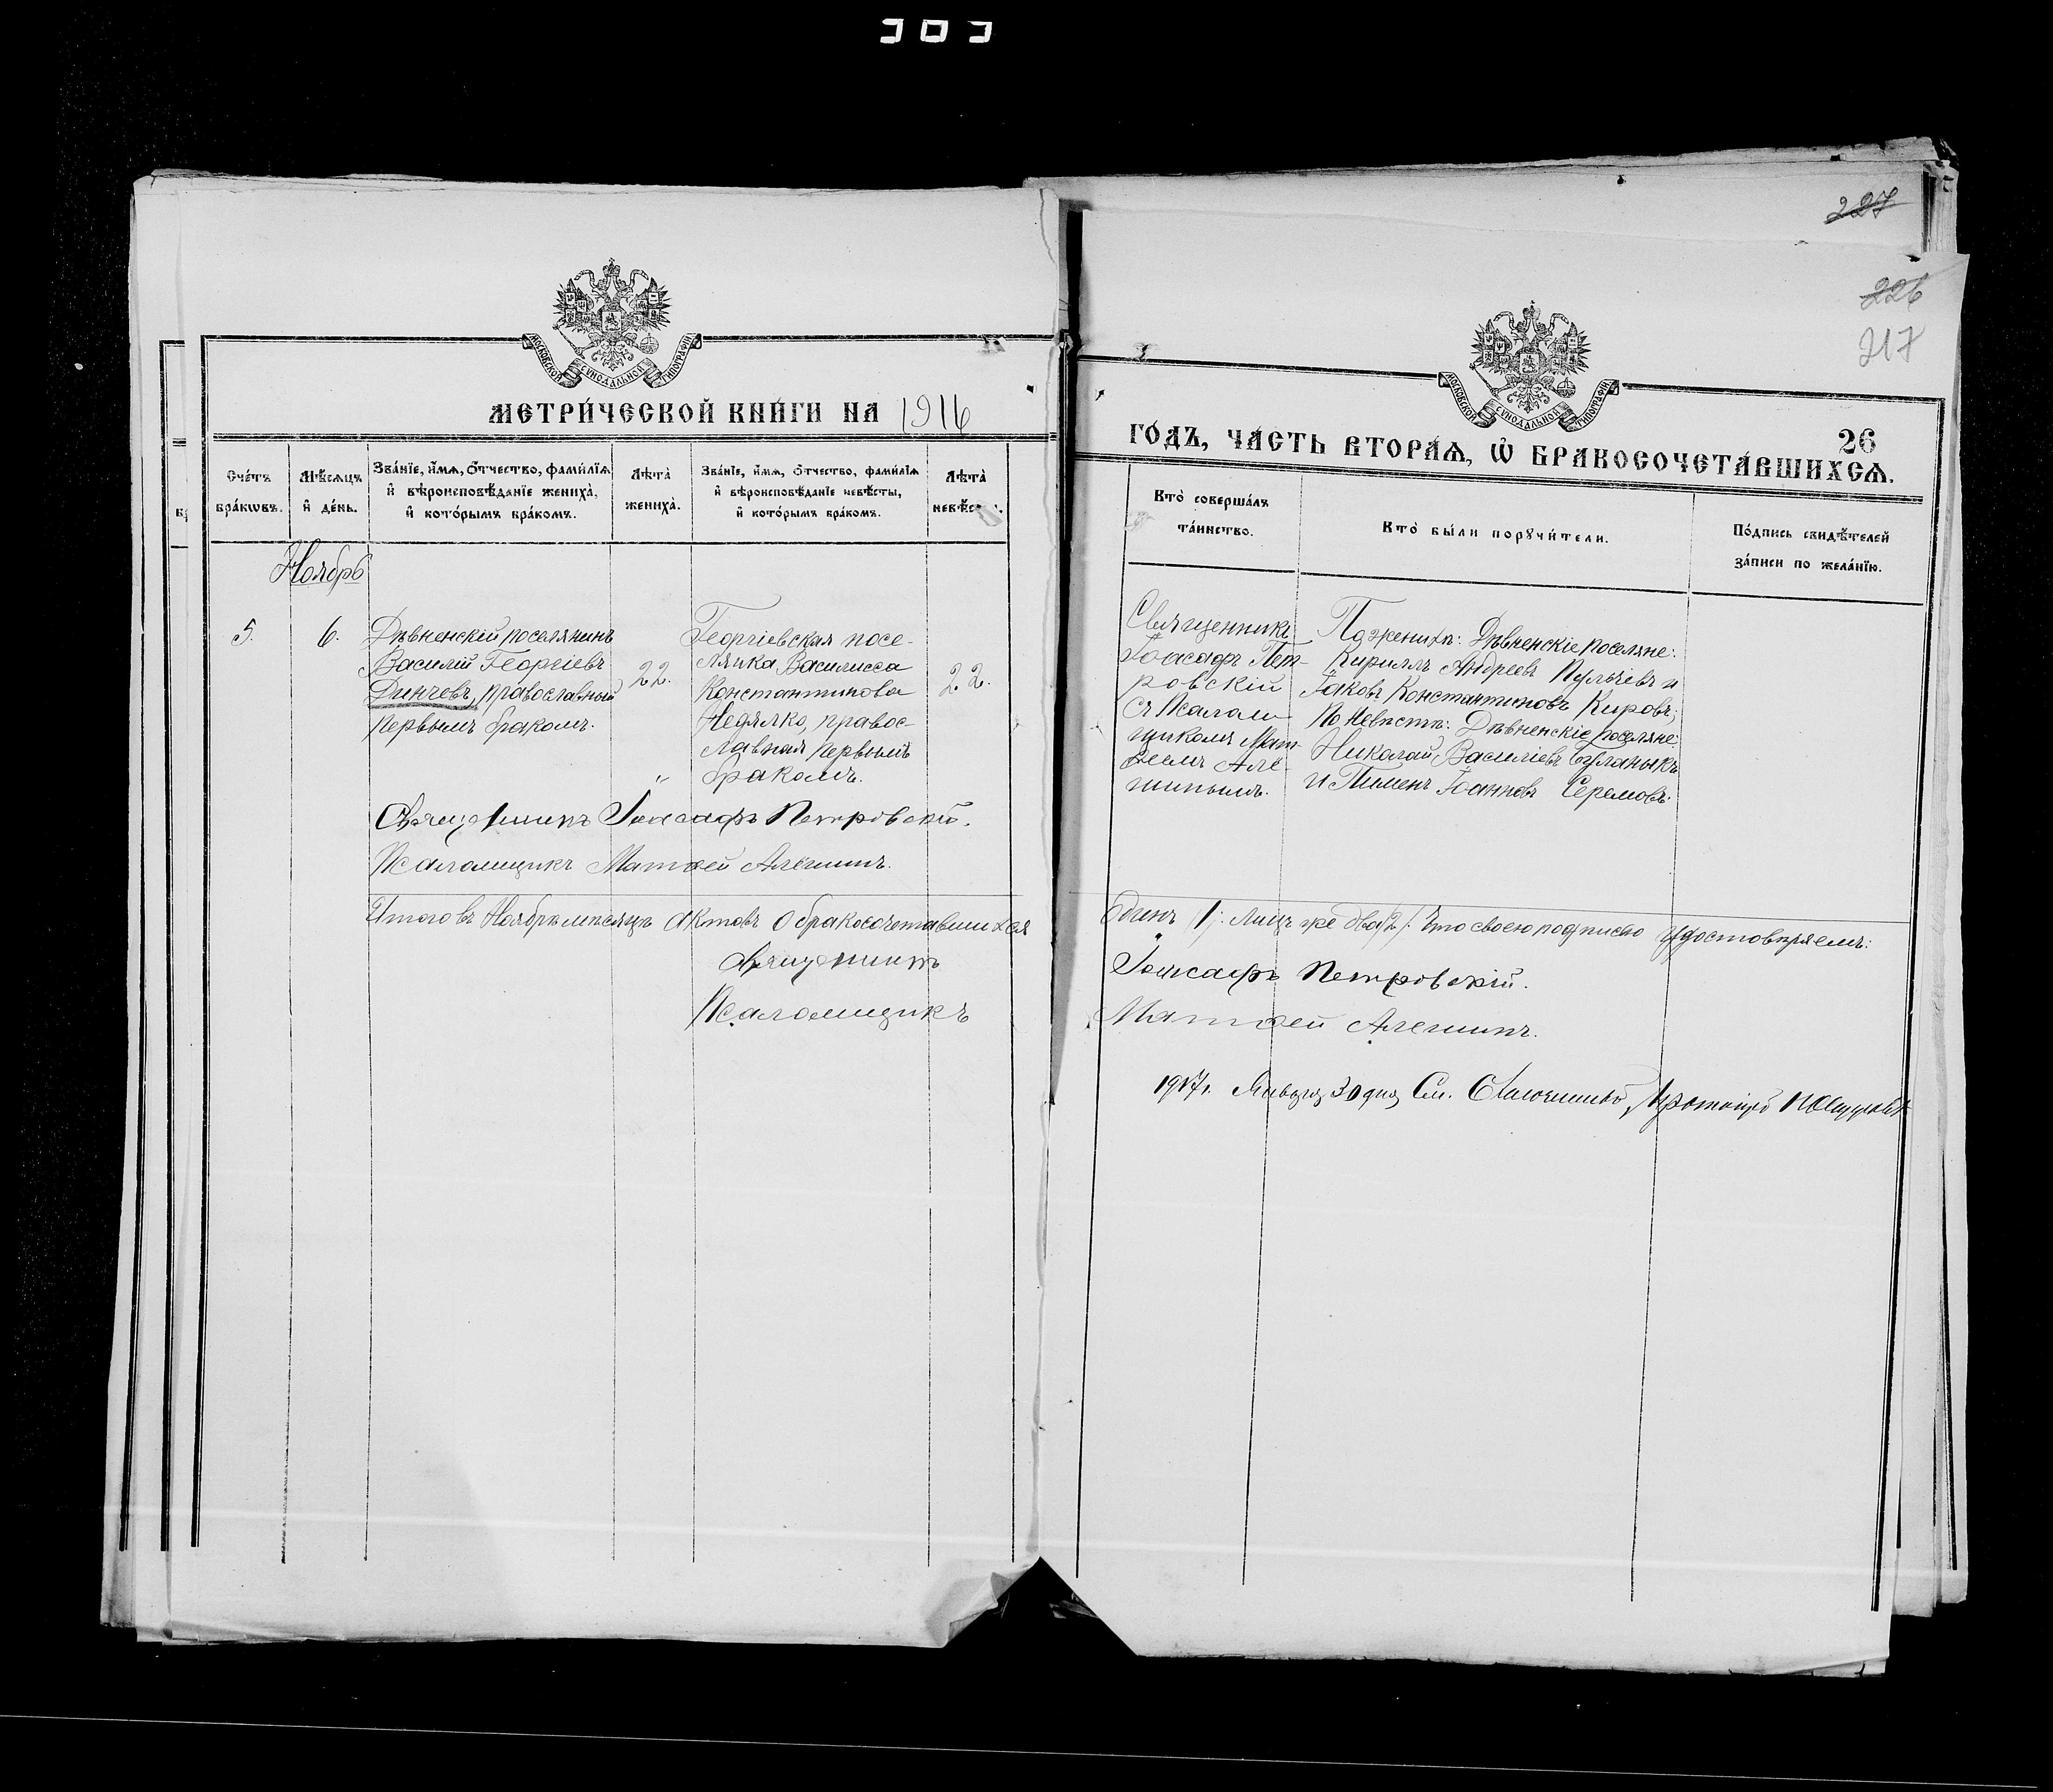 227
226
217
МОСКОВСКОЙ СѴНОДАЛЬНОЙ ТИПОГРАФІИ
МОСКОВСКОЙ СѴНОДАЛЬНОЙ ТИПОГРАФІИ
МЕТРИ́ЧЕСКОЙ КНИ́ГИ НА 1916
ГО́ДЪ, ЧА́СТЬ ВТОРА́Ѧ, Ѽ БРАКОСОЧЕТА́ВШИХСѦ.
26
Сче́тъ
бра́кωвъ.
Мѣ́сѧцъ
и҆ де́нь.
Зва́нїе, и҆́мѧ, ѻ҆́тчество, фами́лїѧ
и҆ вѣроисповѣ́данїе жениха̀,
и҆ кото́рымъ бра́комъ.
Лѣта̀
жениха̀.
Зва́нїе, и҆́мѧ, ѻ҆́тчество, фами́лїѧ
и҆ вѣроисповѣ́данїе невѣ́сты,
и҆ кото́рымъ бра́комъ.
Лѣта̀
невѣ́с
Кто̀ соверша́лъ
та́инство.
Кто̀ бы́ли порꙋчи́тели.
По́дпись свидѣ́телей
за́писи по жела́нїю.
Ноябрь
5.
6.
Дѣвненскій поселянинъ
Василій Георгіевъ
Динчевъ, православный
первымъ бракомъ.
22.
Георгіевская посе-
лянка Василисса
Константинова
Недялко, правос-
лавная первымъ
бракомъ.
22.
Священникъ
Іоасафъ Пет-
ровскій
съ Псалом-
щикомъ Мат-
ѳеемъ Але-
шинымъ.
По женихѣ: Дѣвненскіе поселяне:
Кириллъ Андреевъ Пульчевъ и
Іаковъ Константиновъ Кировъ;
По Невѣстѣ: Дѣвненскіе поселяне:
Николай Василіевъ Буланыкъ
и Пименъ Іоанновъ Серемовъ.
Священникъ Іоасафъ Петровскій.
Псаломщикъ Матѳей Алешинъ.
Итого въ Ноябрѣ мѣсяцѣ актовъ о бракосочетавшихся одинъ /1/: лицъ же два /2/. Что своею подписью удостовѣряемъ:
Священникъ Іоасафъ Петровскій.
Псаломщикъ Матѳей Алешинъ.
1917 г. Января 30 дня См. Благочинный, Протоіерей